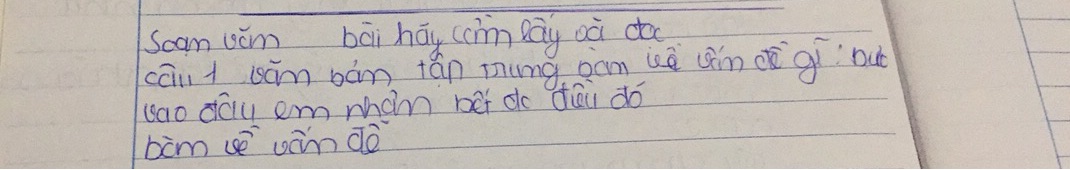 Soạn văn bài hãy cầm lấy và đọc
câu 1 văn bản tập trung bàn về vấn đề gì
vào đây em nhận bết dc điều đó
bàn về vấn đề